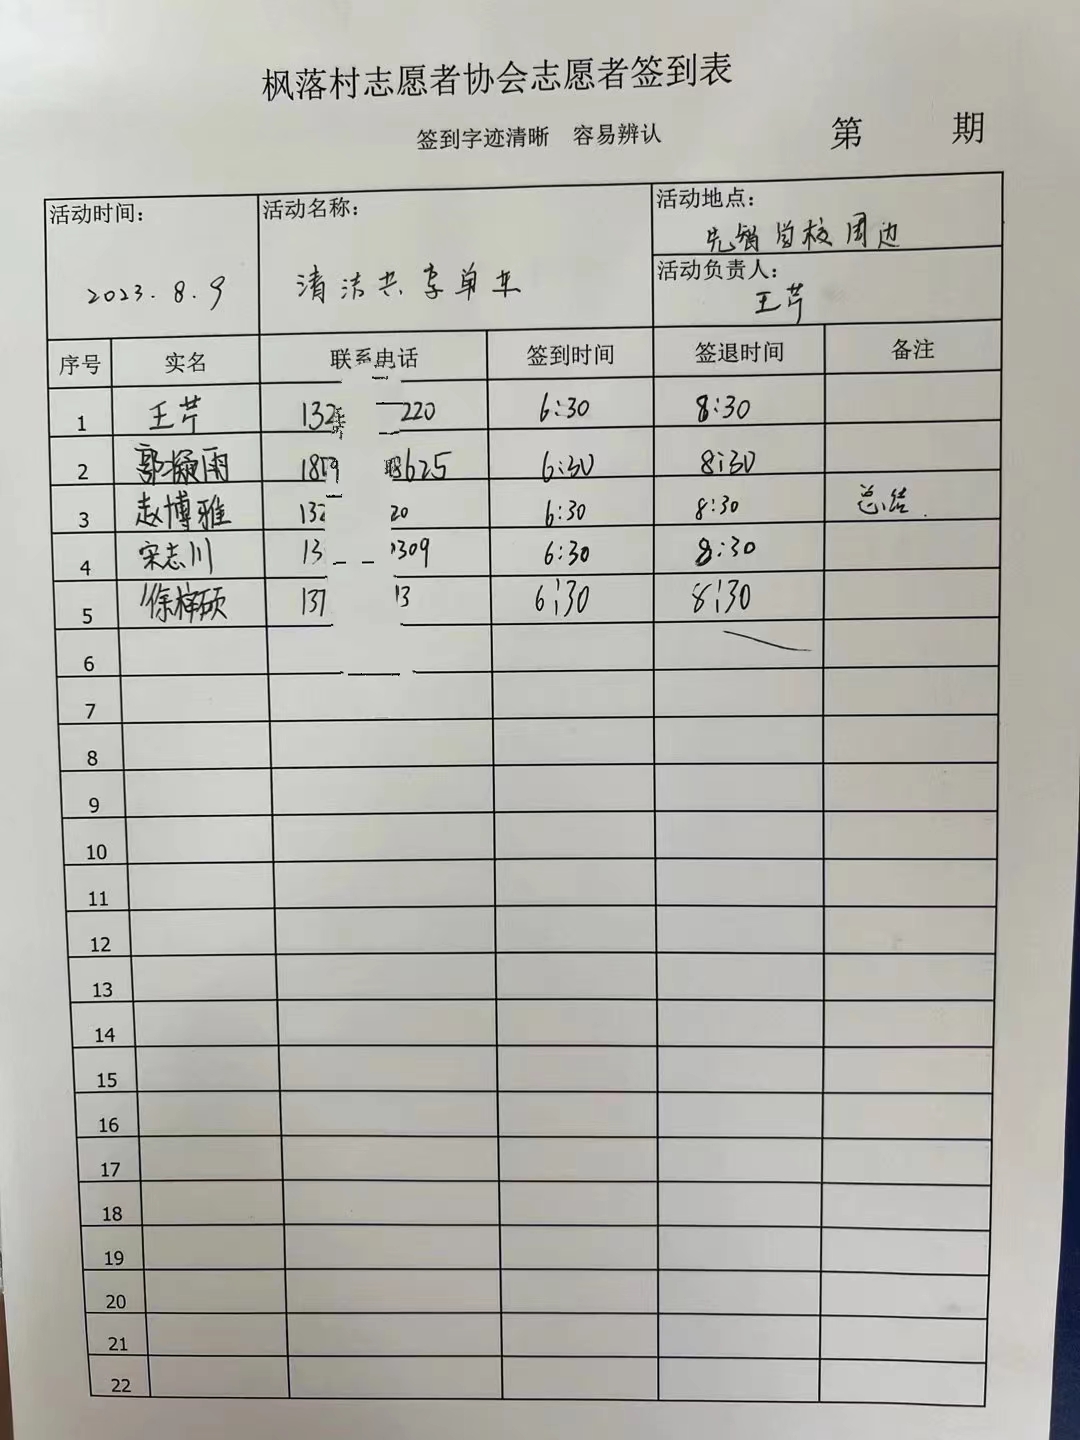 枫落村志愿者协会志愿者签到表
签到字迹清晰 容易辨认 第 期
活动时间: 2023.8.9
活动名称: 清洁共享单车
活动地点: 先智学校周边
活动负责人: 王芹
序号 实名 联系电话 签到时间 签退时间 备注
1 王芹 132 220 6:30 8:30
2 郭凝雨 1859 8625 6:30 8:30
3 赵博雅 132 20 6:30 8:30 总结.
4 宋志川 13 309 6:30 8:30
5 徐梓硕 137 13 6:30 8:30
6
7
8
9
10
11
12
13
14
15
16
17
18
19
20
21
22